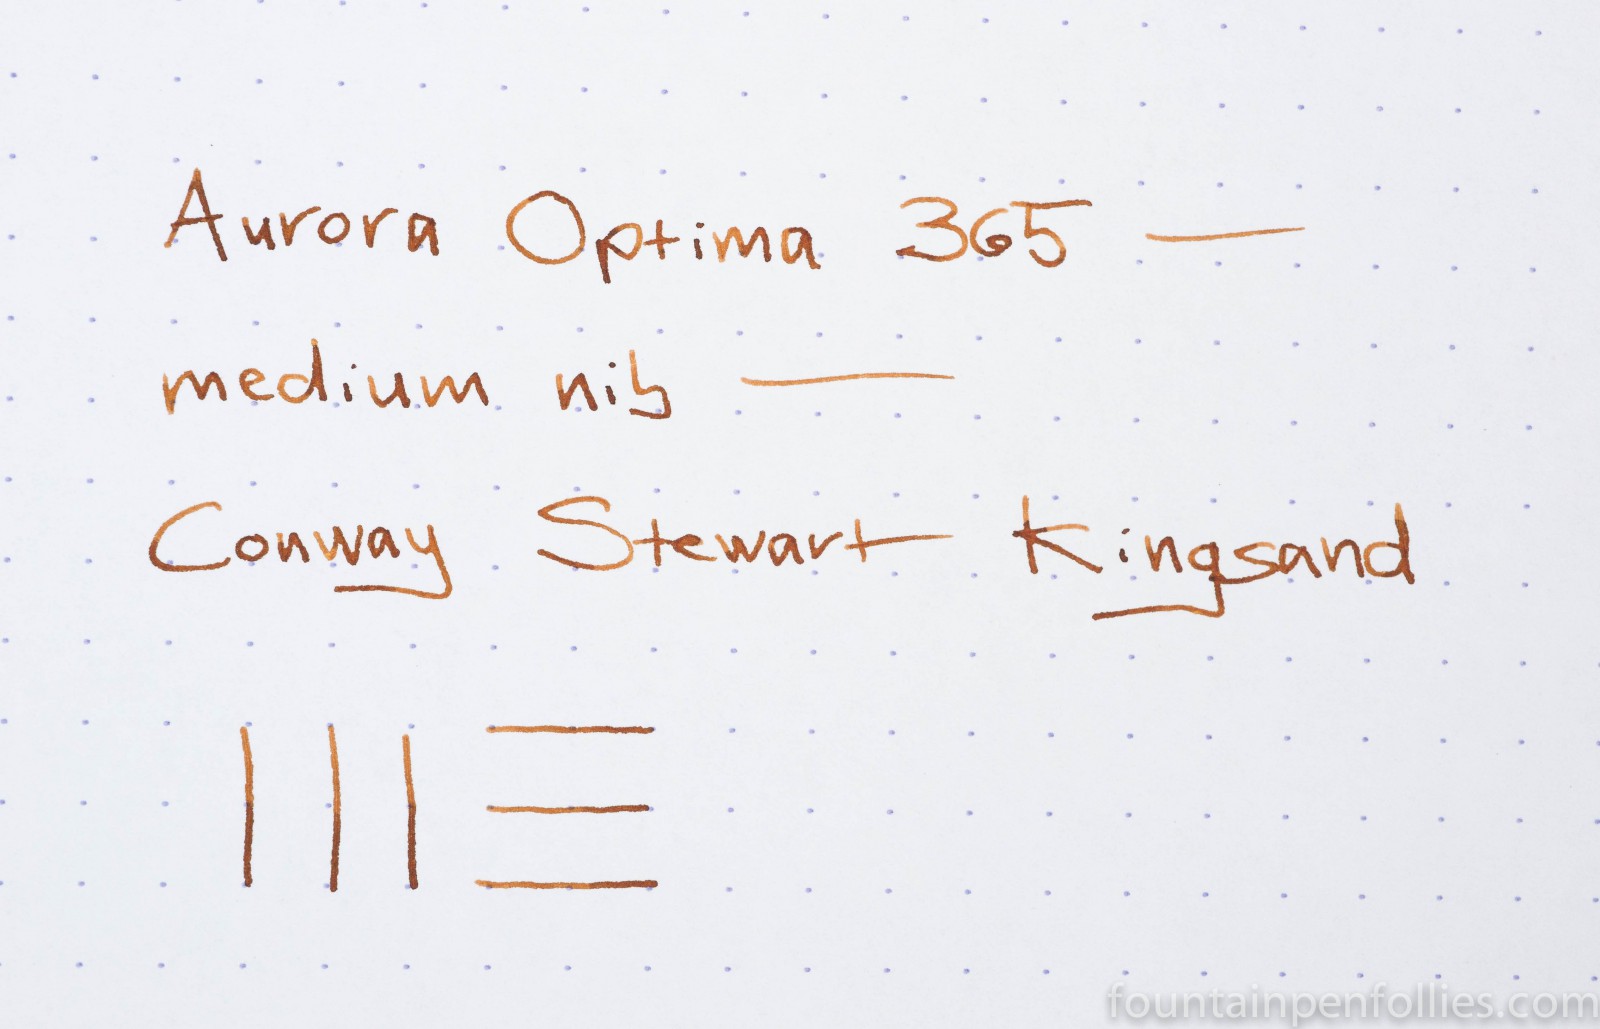 Aurora Optima 365 —
medium nib —
Conway Stewart Kingsand
fountainpenfollies.com